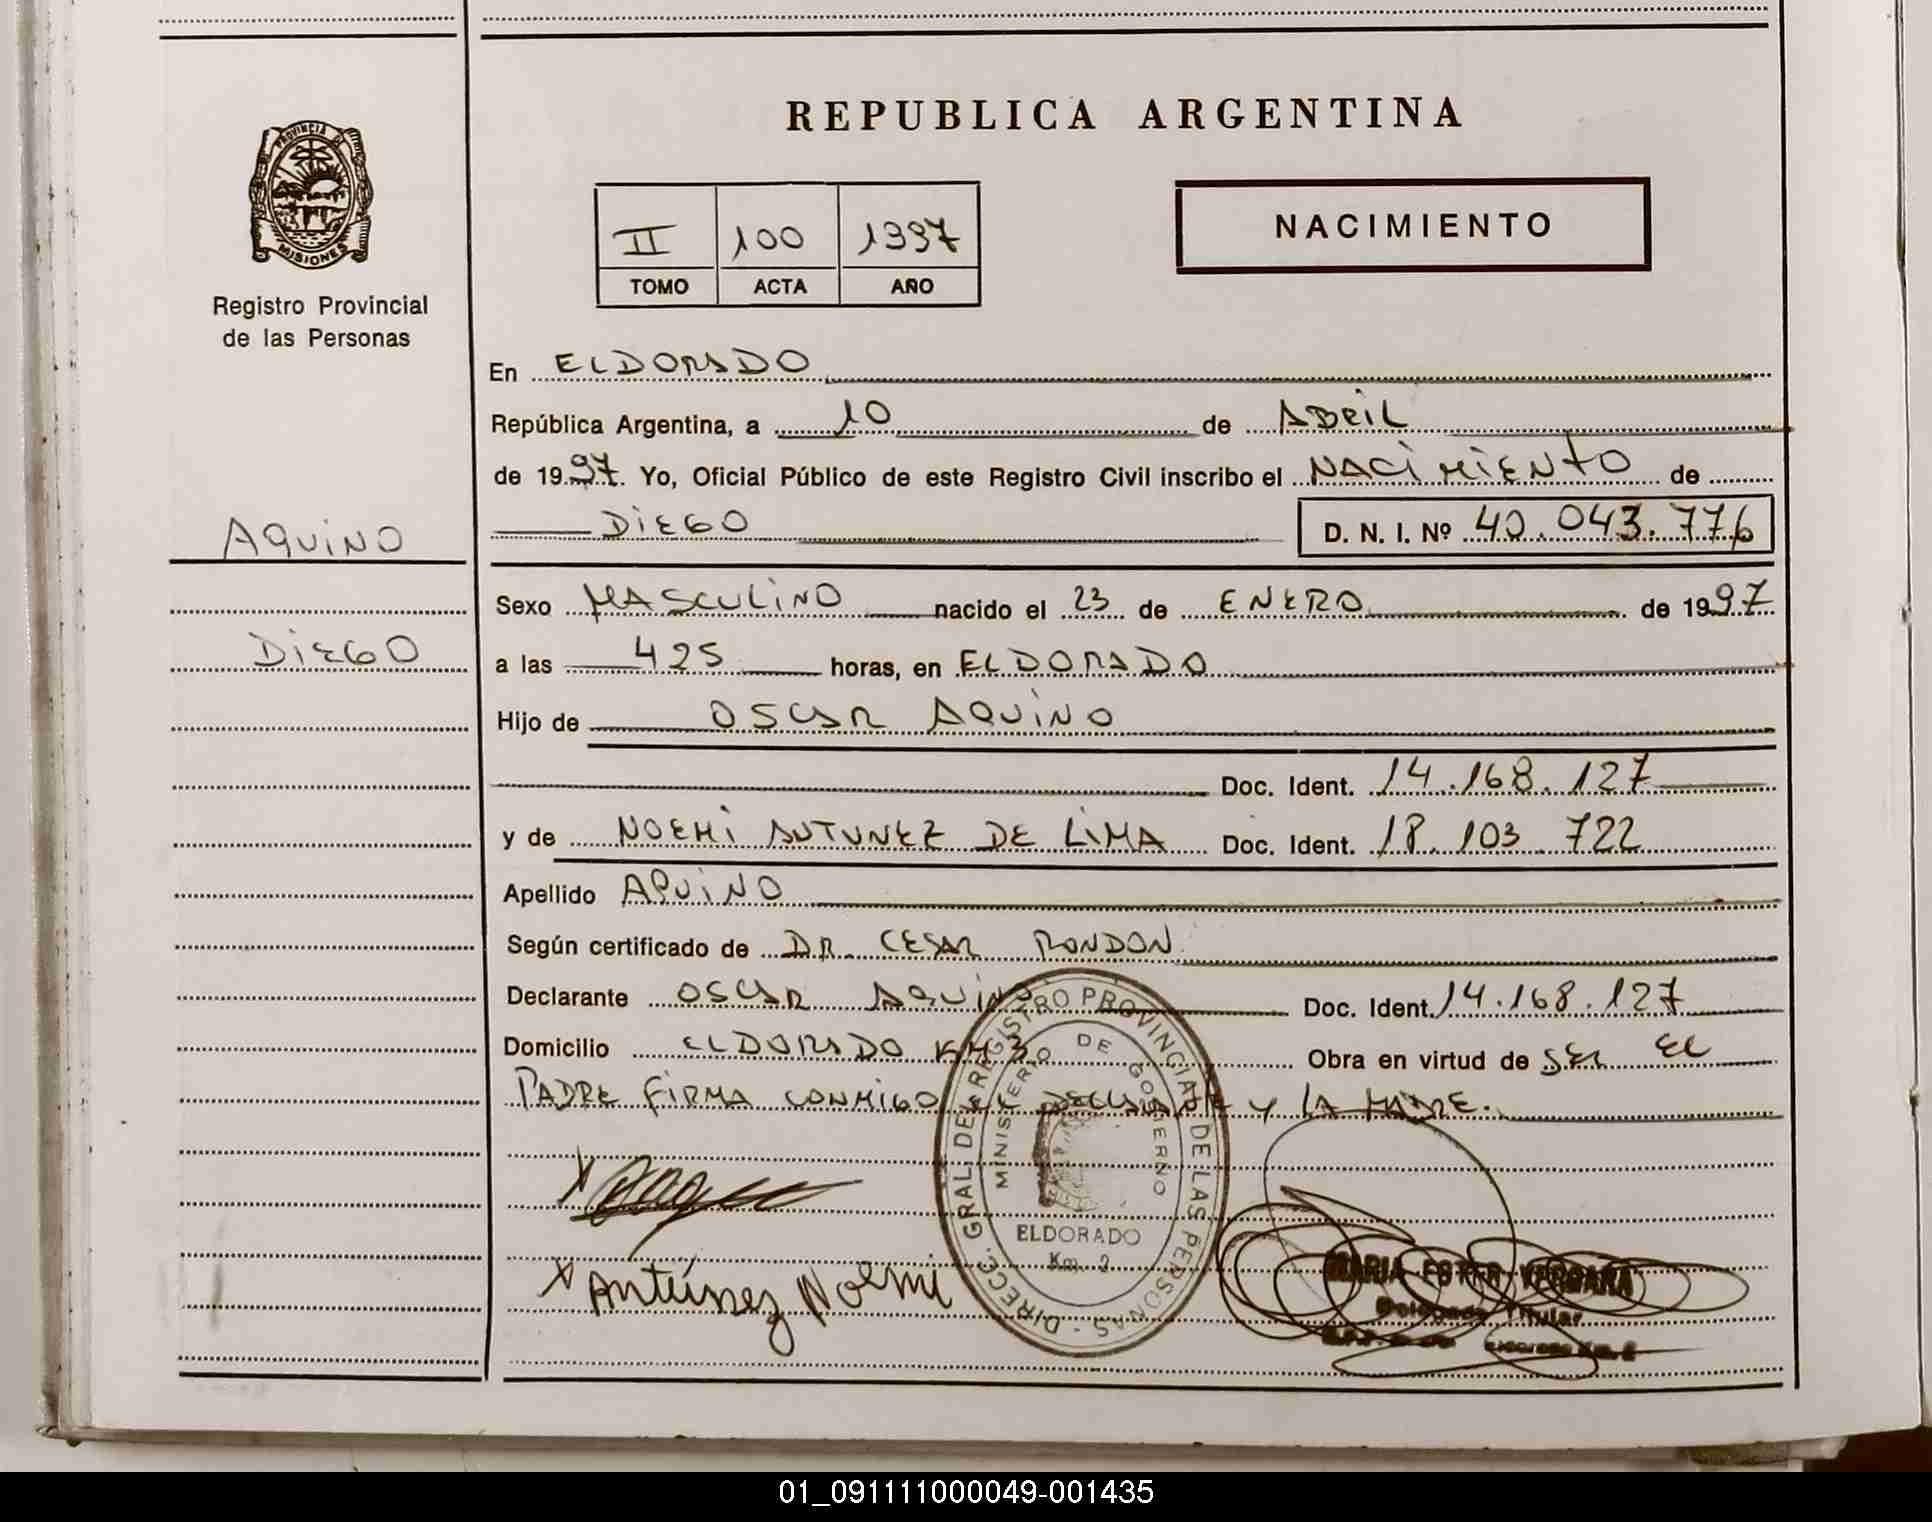 REPUBLICA ARGENTINA
PROVINCIA DE
MISIONES
Registro Provincial
de las Personas
II 100 1997
TOMO ACTA AÑO
NACIMIENTO
En ELDORADO
República Argentina, a 10 de ABRIL
de 1997. Yo, Oficial Público de este Registro Civil inscribo el NACIMIENTO de
DIEGO D. N. I. Nº 40.043.776
AQUINO
DIEGO
Sexo MASCULINO nacido el 23 de ENERO de 1997
a las 425 horas, en ELDORADO
Hijo de OSCAR AQUINO
Doc. Ident. 14.168.127
y de NOEMI ANTUNEZ DE LIMA Doc. Ident. 18.103.722
Apellido AQUINO
Según certificado de DR. CESAR RONDON
Declarante OSCAR AQUINO Doc. Ident. 14.168.127
Domicilio ELDORADO KM 3 Obra en virtud de SER EL
PADRE FIRMA CONMIGO EL DECLARANTE Y LA MADRE.
DIREC. GRAL. DE REGISTRO PROVINCIAL DE LAS PERSONAS
MINISTERIO DE GOBIERNO
ELDORADO
Km. 2
X
X Antúnez Noemi
MARIA ESTER VERGARA
Delegada Titular
Eldorado Km. 2
01_091111000049-001435